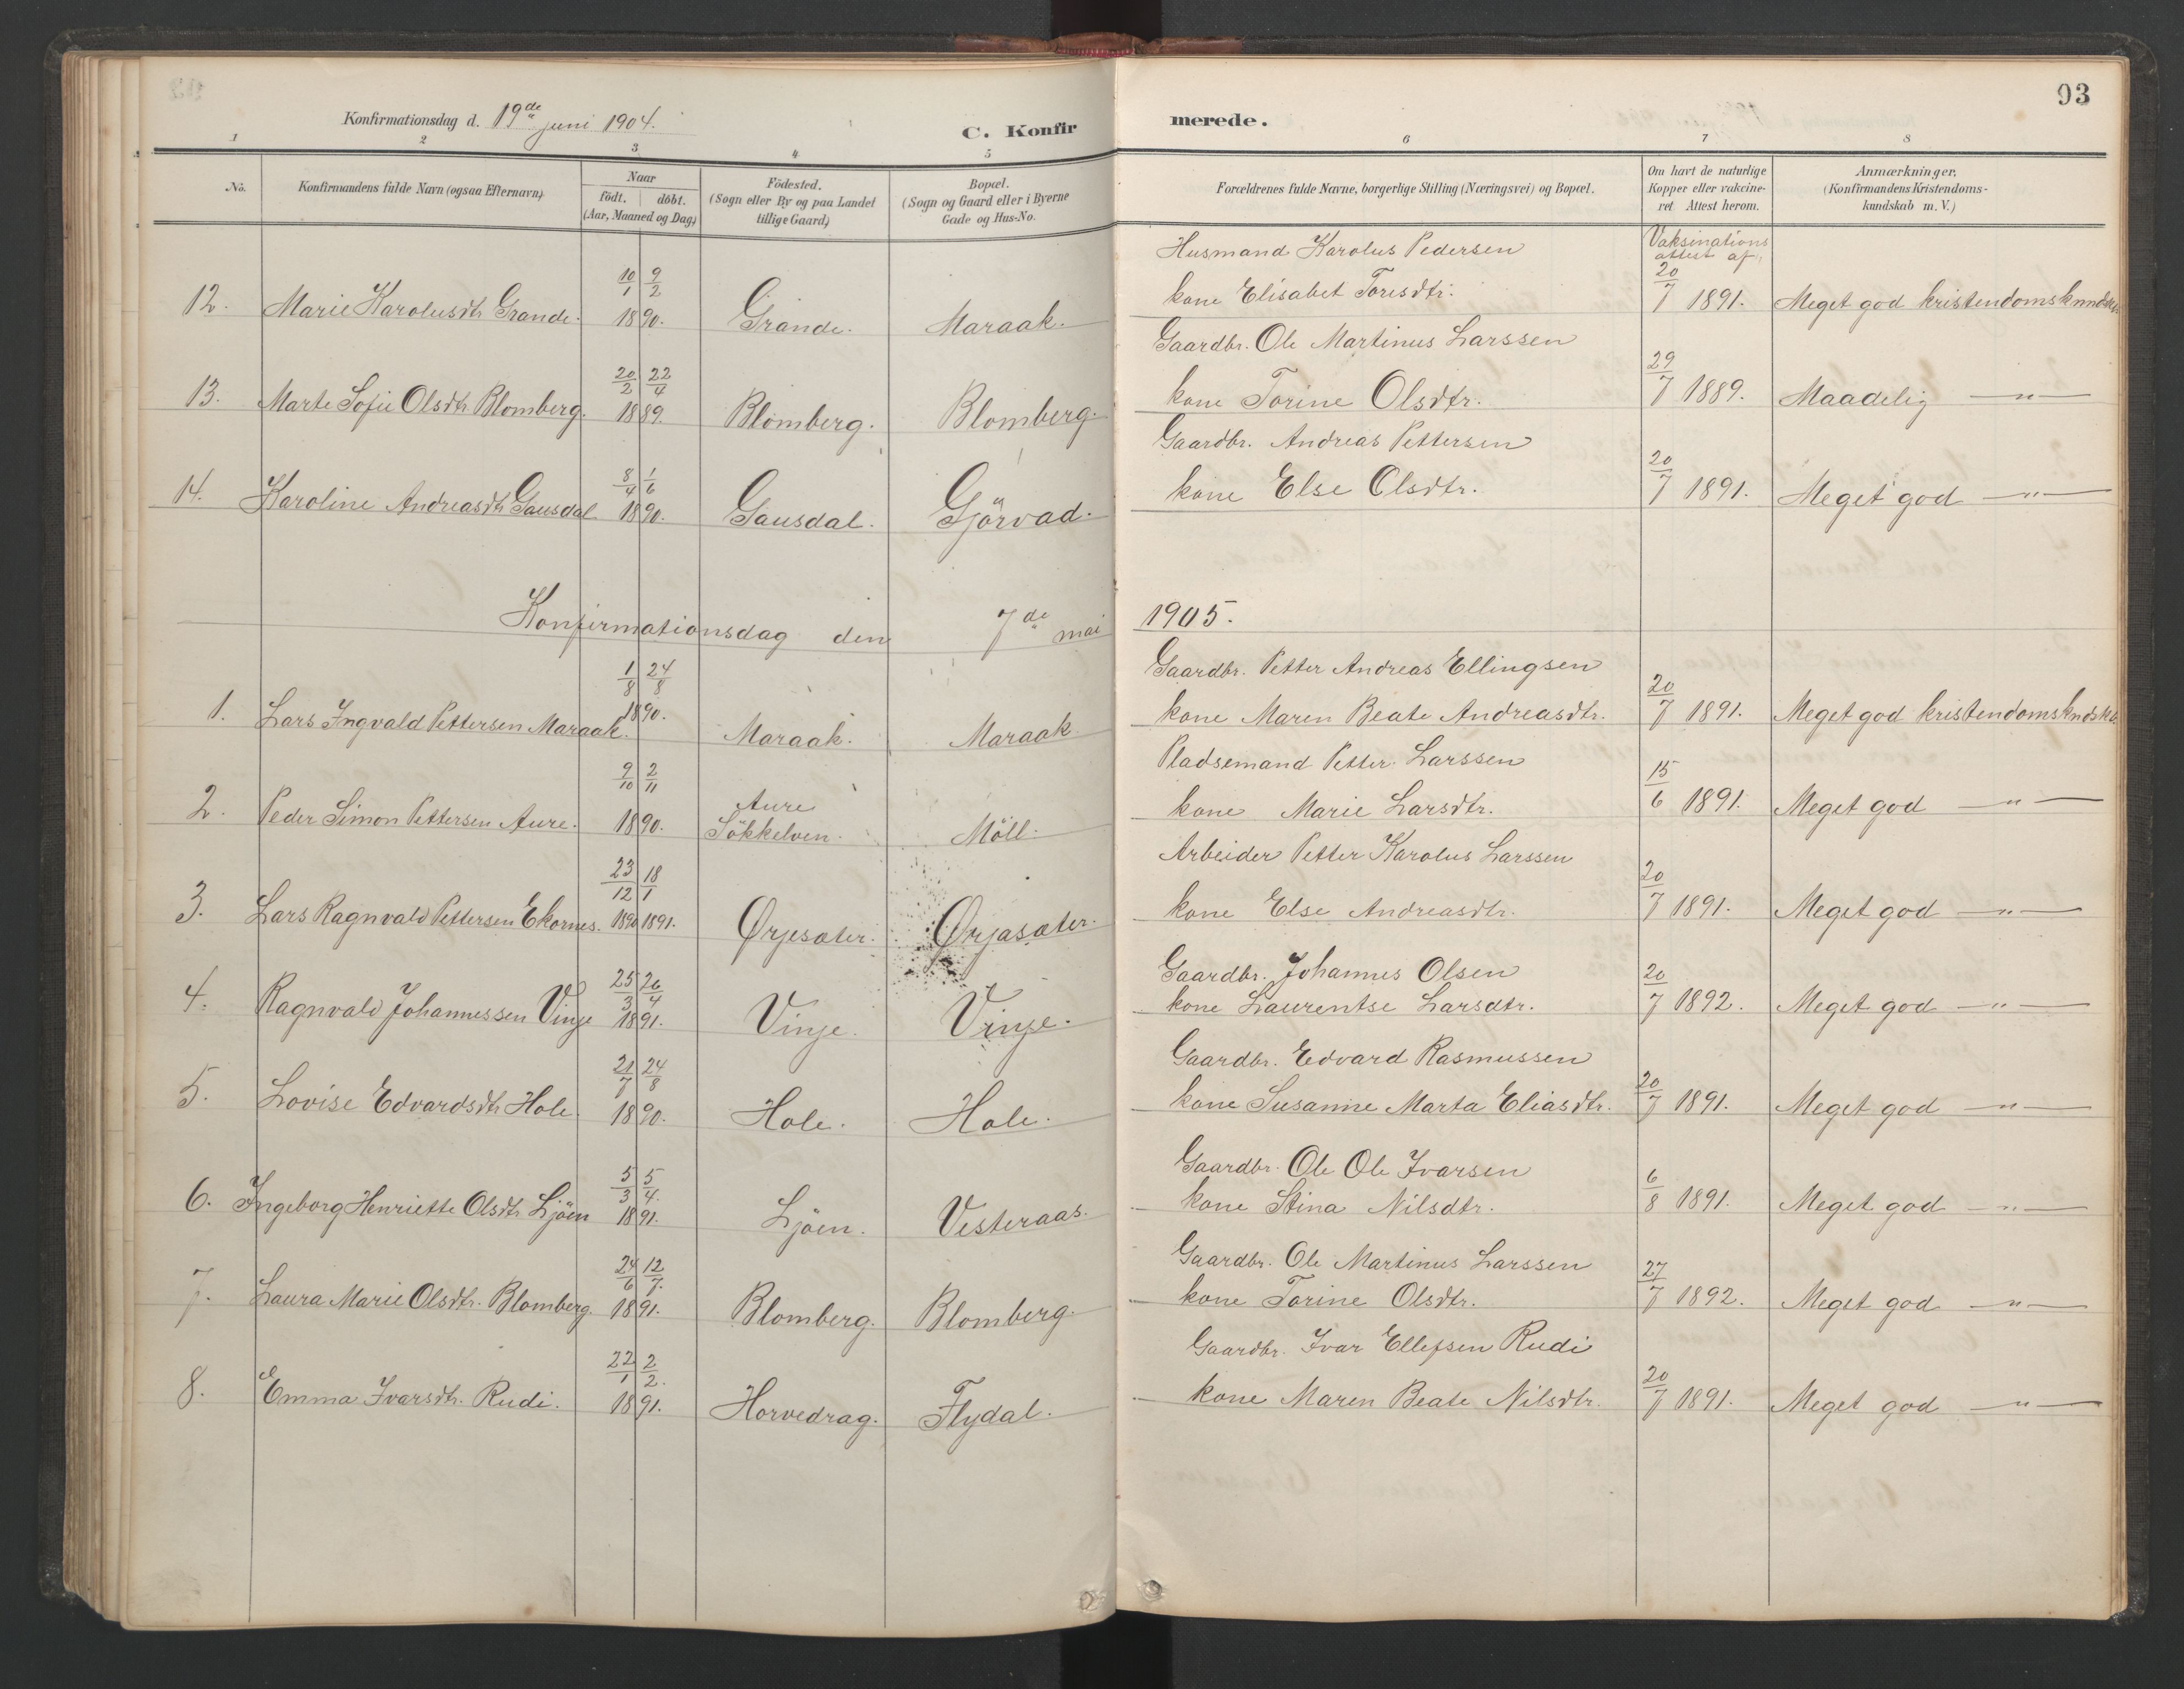 93
Konfirmationsdag d. 19de juni 1904.
C. Konfirmerede.
1 2 3 4 5 6 7 8
No. Konfirmandens fulde Navn (ogsaa Efternavn) Naar födt. döbt. (Aar, Maaned og Dag) Födested. (Sogn eller By og paa Landet tillige Gaard) Bopæl. (Sogn og Gaard eller i Byerne Gade og Hus-No. Forældrenes fulde Navne, borgerlige Stilling (Næringsvei) og Bopæl. Om havt de naturlige Kopper eller vakcineret Attest herom. Anmærkninger. (Konfirmandens Kristendomskundskab m. V.)
Husmand Karolus Pedersen Vaksinations attest af,
12. Marie Karolusdtr Grande. 10/1 9/2 1890. Grande. Maraak. kone Elisabet Toresdtr. 20/7 1891. Meget god kristendomskundsk
Gaardbr. Ole Martinus Larssen
13. Marte Sofie Olsdtr Blomberg. 20/2 22/4 1889. Blomberg. Blomberg. kone Torine Olsdtr. 29/7 1889. Maadelig —"—
Gaardbr. Andreas Pettersen
14. Karoline Andreasdtr Gausdal 8/4 1/6 1890. Gausdal. Gjörvad. kone Else Olsdtr. 20/7 1891. Meget god —"—
Konfirmationsdag den 7de mai 1905.
Gaardbr. Petter Andreas Ellingsen
1. Lars Ingvald Pettersen Maraak. 1/8 24/8 1890. Maraak. Maraak kone Maren Beate Andreasdtr. 20/7 1891. Meget god kristendomskndsk
Pladsemand Petter Larssen
2. Peder Simon Pettersen Aure. 9/10 2/11 1890. Aure Sökkelven. Möll. kone Marie Larsdtr. 15/6 1891. Meget god —"—
Arbeider Petter Karolus Larssen
3. Lars Ragnvald Pettersen Ekornes. 23/12 1890 18/1 1891. Ørjesæter. Ørjasæter. kone Else Andreasdtr. 20/7 1891. Meget god —"—
Gaardbr. Johannes Olsen
4. Ragnvald Johannessen Vinje 25/3 26/4 1891. Vinje. Vinje. kone Laurentse Larsdtr. 20/7 1892. Meget god —"—
Gaardbr. Edvard Rasmussen
5. Lovise Edvardsdtr Hole. 21/7 24/8 1890. Hole. Hole. kone Susanne Marta Eliasdtr. 20/7 1891. Meget god —"—
Gaardbr. Ole Ole Ivarsen
6. Ingeborg Henriette Olsdtr Ljöen 5/3 5/4. 1891. Ljöen. Vesteraas. kone Stina Nilsdtr. 6/8 1891. Meget god —"—
Gaardbr. Ole Martinus Larssen
7. Laura Marie Olsdtr. Blomberg. 24/6 12/7. 1891. Blomberg. Blomberg. kone Torine Olsdtr. 27/7 1892. Meget god —"—
Gaardbr. Ivar Ellefsen Rudi
8. Emma Ivarsdtr. Rudi. 22/1 2/2. 1891. Horvedrag. Flydal. kone Maren Beate Nilsdtr. 20/7 1891. Meget god —"—